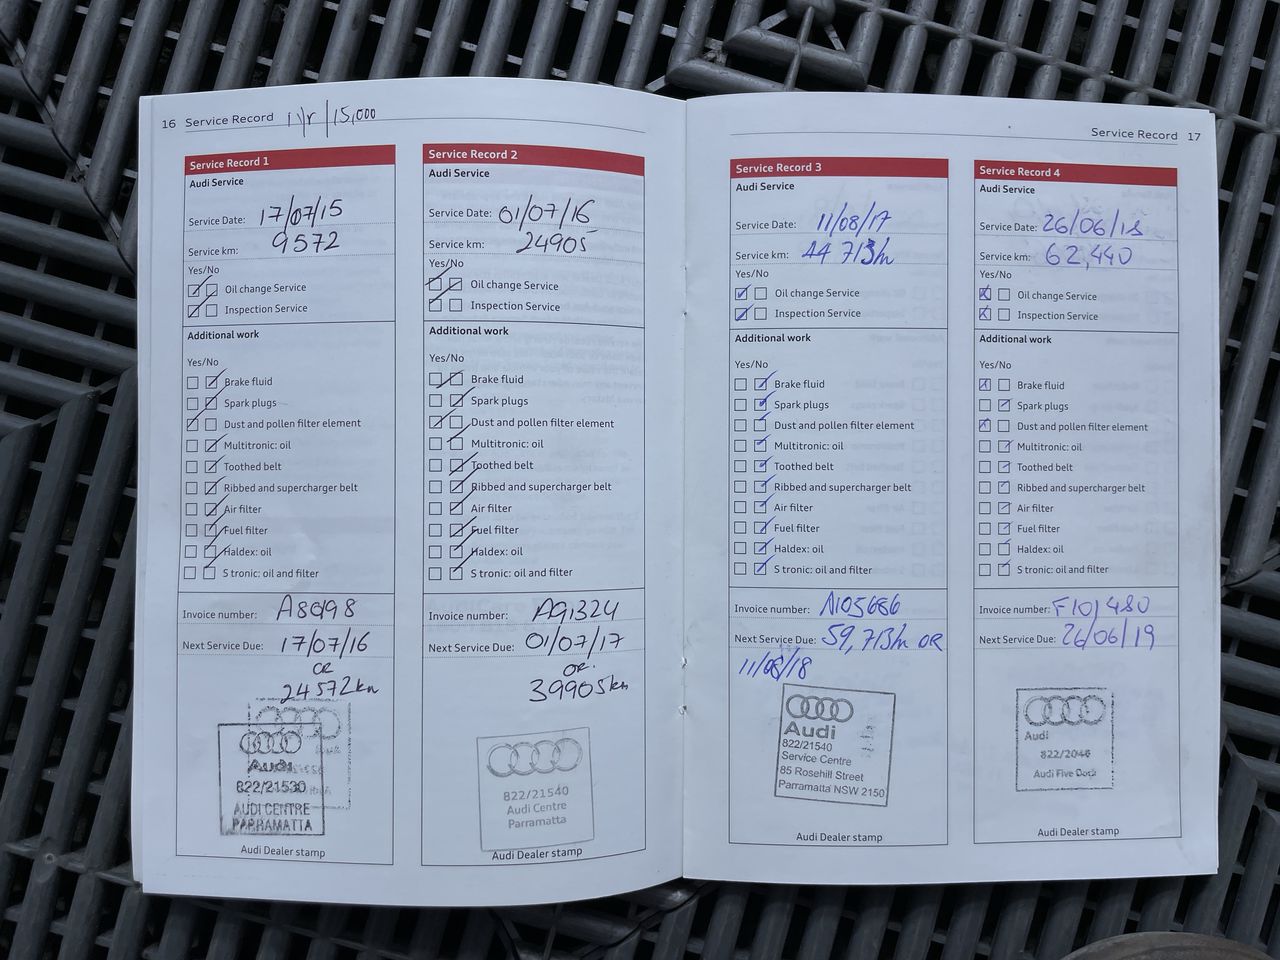 16 Service Record 1yr/15,000
Service Record 1
Audi Service
Service Date: 17/07/15
Service km: 9572
Yes/No
Oil change Service
Inspection Service
Additional work
Yes/No
Brake fluid
Spark plugs
Dust and pollen filter element
Multitronic: oil
Toothed belt
Ribbed and supercharger belt
Air filter
Fuel filter
Haldex: oil
S tronic: oil and filter
Invoice number:
Next Service Due: 17/07/16
OR
24572km
Audi
822/21530
AUDI CENTRE
PARRAMATTA
Audi Dealer stamp
Service Record 2
Audi Service
Service Date: 01/07/16
Service km: 24905
Yes/No
Oil change Service
Inspection Service
Additional work
Yes/No
Brake fluid
Spark plugs
Dust and pollen filter element
Multitronic: oil
Toothed belt
Ribbed and supercharger belt
Air filter
Fuel filter
Haldex: oil
S tronic: oil and filter
Invoice number: A91324
Next Service Due: 01/07/17
OR.
39905km
822/21540
Audi Centre
Parramatta
Audi Dealer stamp
Service Record 17
Service Record 3
Audi Service
Service Date: 11/08/17
Service km: 44 713km
Yes/No
Oil change Service
Inspection Service
Additional work
Yes/No
Brake fluid
Spark plugs
Dust and pollen filter element
Multitronic: oil
Toothed belt
Ribbed and supercharger belt
Air filter
Fuel filter
Haldex: oil
S tronic: oil and filter
Invoice number: A105686
Next Service Due: 59,713km OR
11/08/18
Audi
822/21540
Service Centre
85 Rosehill Street
Parramatta NSW 2150
Audi Dealer stamp
Service Record 4
Audi Service
Service Date: 26/06/18
Service km: 62,440
Yes/No
Oil change Service
Inspection Service
Additional work
Yes/No
Brake fluid
Spark plugs
Dust and pollen filter element
Multitronic: oil
Toothed belt
Ribbed and supercharger belt
Air filter
Fuel filter
Haldex: oil
S tronic: oil and filter
Invoice number: F101480
Next Service Due: 26/06/19
Audi
822/2046
Audi Five Dock
Audi Dealer stamp